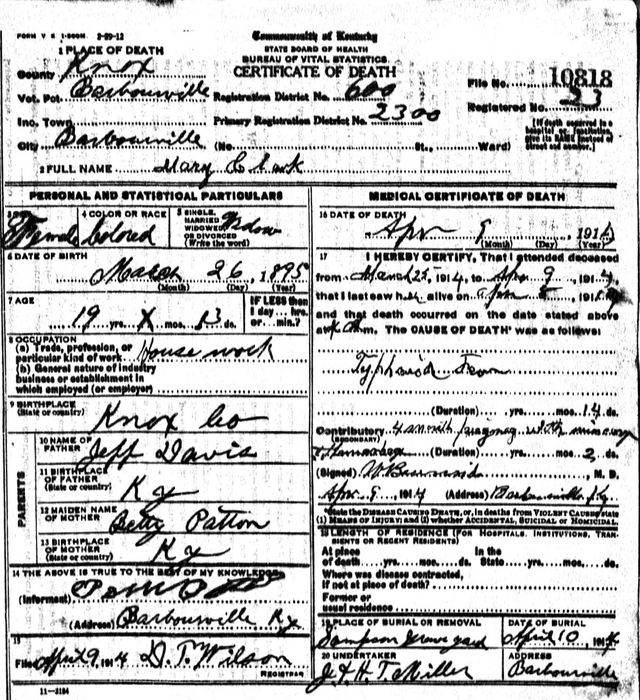 FORM V S 1-500M 2-29-12
Commonwealth of Kentucky
STATE BOARD OF HEALTH
BUREAU OF VITAL STATISTICS
CERTIFICATE OF DEATH
1 PLACE OF DEATH
County Knox
Vot. Pct. Barbourville
Inc. Town
City Barbourville
Registration District No. 600
Primary Registration District No. 2300
(No. St., Ward)
File No. 10818
Registered No. 23
[If death occurred in a hospital or institution, give its NAME instead of street and number.]
2 FULL NAME Mary Clark
PERSONAL AND STATISTICAL PARTICULARS
3 SEX Female
4 COLOR OR RACE Colored
5 SINGLE, MARRIED, WIDOWED OR DIVORCED (Write the word) Widow
6 DATE OF BIRTH
March 26, 1895
(Month) (Day) (Year)
7 AGE
19 yrs. X mos. 13 ds.
IF LESS than 1 day...hrs. or...min.?
8 OCCUPATION
(a) Trade, profession, or particular kind of work House work
(b) General nature of industry business or establishment in which employed (or employer)
9 BIRTHPLACE (State or country) Knox Co
PARENTS
10 NAME OF FATHER Jeff Davis
11 BIRTHPLACE OF FATHER (State or country) Ky
12 MAIDEN NAME OF MOTHER Betty Patton
13 BIRTHPLACE OF MOTHER (State or country) Ky
14 THE ABOVE IS TRUE TO THE BEST OF MY KNOWLEDGE
(Informant)
(Address) Barbourville Ky
15
Filed April 9, 1914 D.T. Wilson
REGISTRAR
11-3184
MEDICAL CERTIFICATE OF DEATH
16 DATE OF DEATH
Apr 9, 1914
(Month) (Day) (Year)
17 I HEREBY CERTIFY, That I attended deceased
from March 25, 1914, to Apr 9, 1914,
that I last saw h alive on April 1914,
and that death occurred on the date stated above
at m. The CAUSE OF DEATH* was as follows:
Typhoid
(Duration) yrs. mos. 14 ds.
Contributory (SECONDARY) 4 month
(Duration) yrs. mos. 2 ds.
(Signed) M. D.
Apr 9, 1914 (Address) Barbourville Ky
*State the DISEASE CAUSING DEATH, or, in deaths from VIOLENT CAUSES state (1) MEANS OF INJURY; and (2) whether ACCIDENTAL, SUICIDAL or HOMICIDAL.
18 LENGTH OF RESIDENCE (FOR HOSPITALS, INSTITUTIONS, TRANSIENTS OR RECENT RESIDENTS)
At place of death yrs. mos. ds. In the State yrs. mos. ds.
Where was disease contracted, If not at place of death?
Former or usual residence
19 PLACE OF BURIAL OR REMOVAL
Sampson Graveyard
DATE OF BURIAL
April 10, 1914
20 UNDERTAKER
J & H T. Miller
ADDRESS
Barbourville